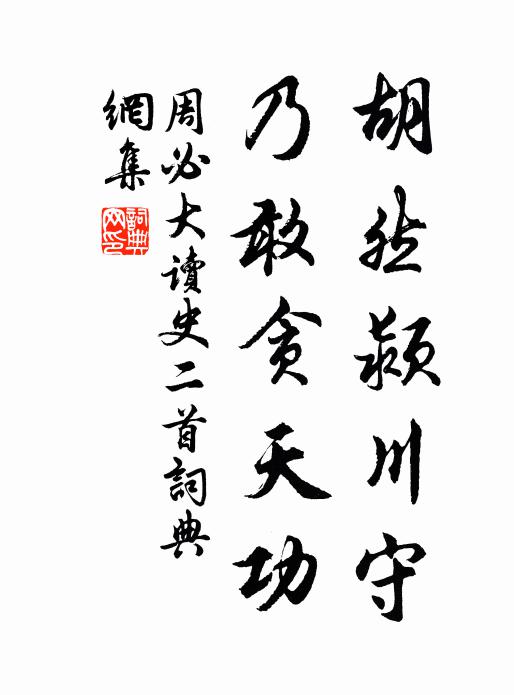 胡然潁川守
乃敢貪天功
周必大讀史二首詞典
網集
詞典
网印